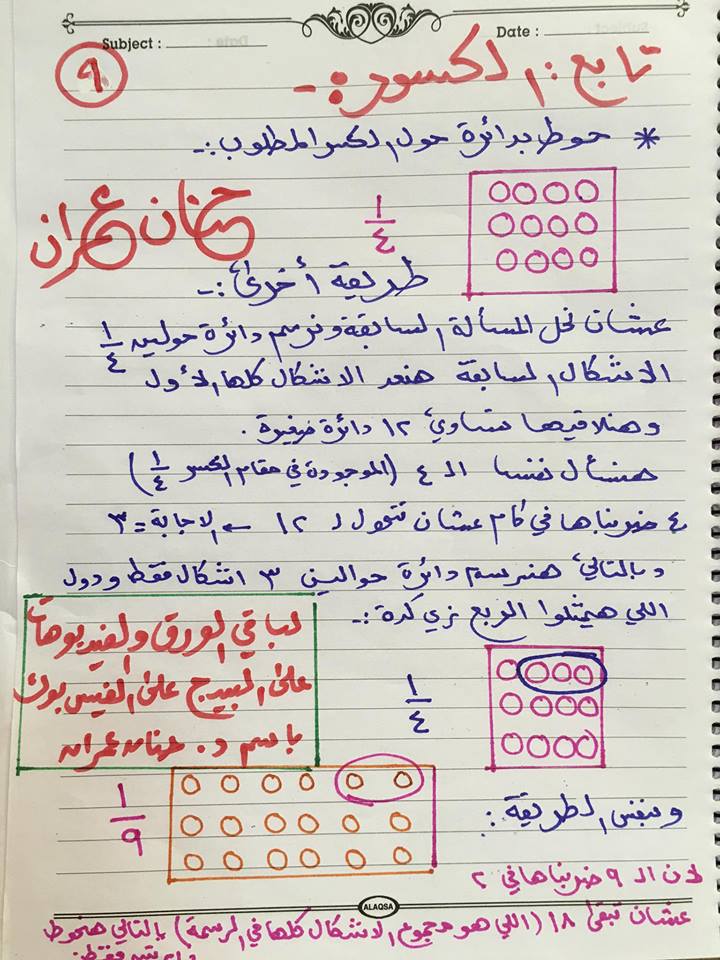 Subject :
Date :
٩
تابع : الكسور :-
* حوط بدائرة حول الكسر المطلوب :-
١/٤
حنان عمران
طريقة أخرى :-
عشان نحل المسألة السابقة ونرسم دائرة حولين ١/٤
الاشكال السابقة هنعد الاشكال كلها الأول
وهنلاقيها بتساوي ١٢ دائرة صغيرة .
هنسأل نفسنا الـ ٤ (الموجودة في مقام الكسر ١/٤)
٤ ضربناها في كام عشان تتحول لـ ١٢ ← الاجابة = ٣
وبالتالي هنرسم دائرة حوالين ٣ اشكال فقط ودول
اللي هيمثلوا الربع زي كدة :-
١/٤
لباقي الورق والفيديوهات
على البيدج على الفيس بوك
باسم د. حنان عمران
وبنفس الطريقة :
١/٩
لان الـ ٩ ضربناها في ٢
ALAQSA
عشان تبقى ١٨ (اللي هو مجموع الاشكال كلها في الرسمة) بالتالي هنحوط
فقط